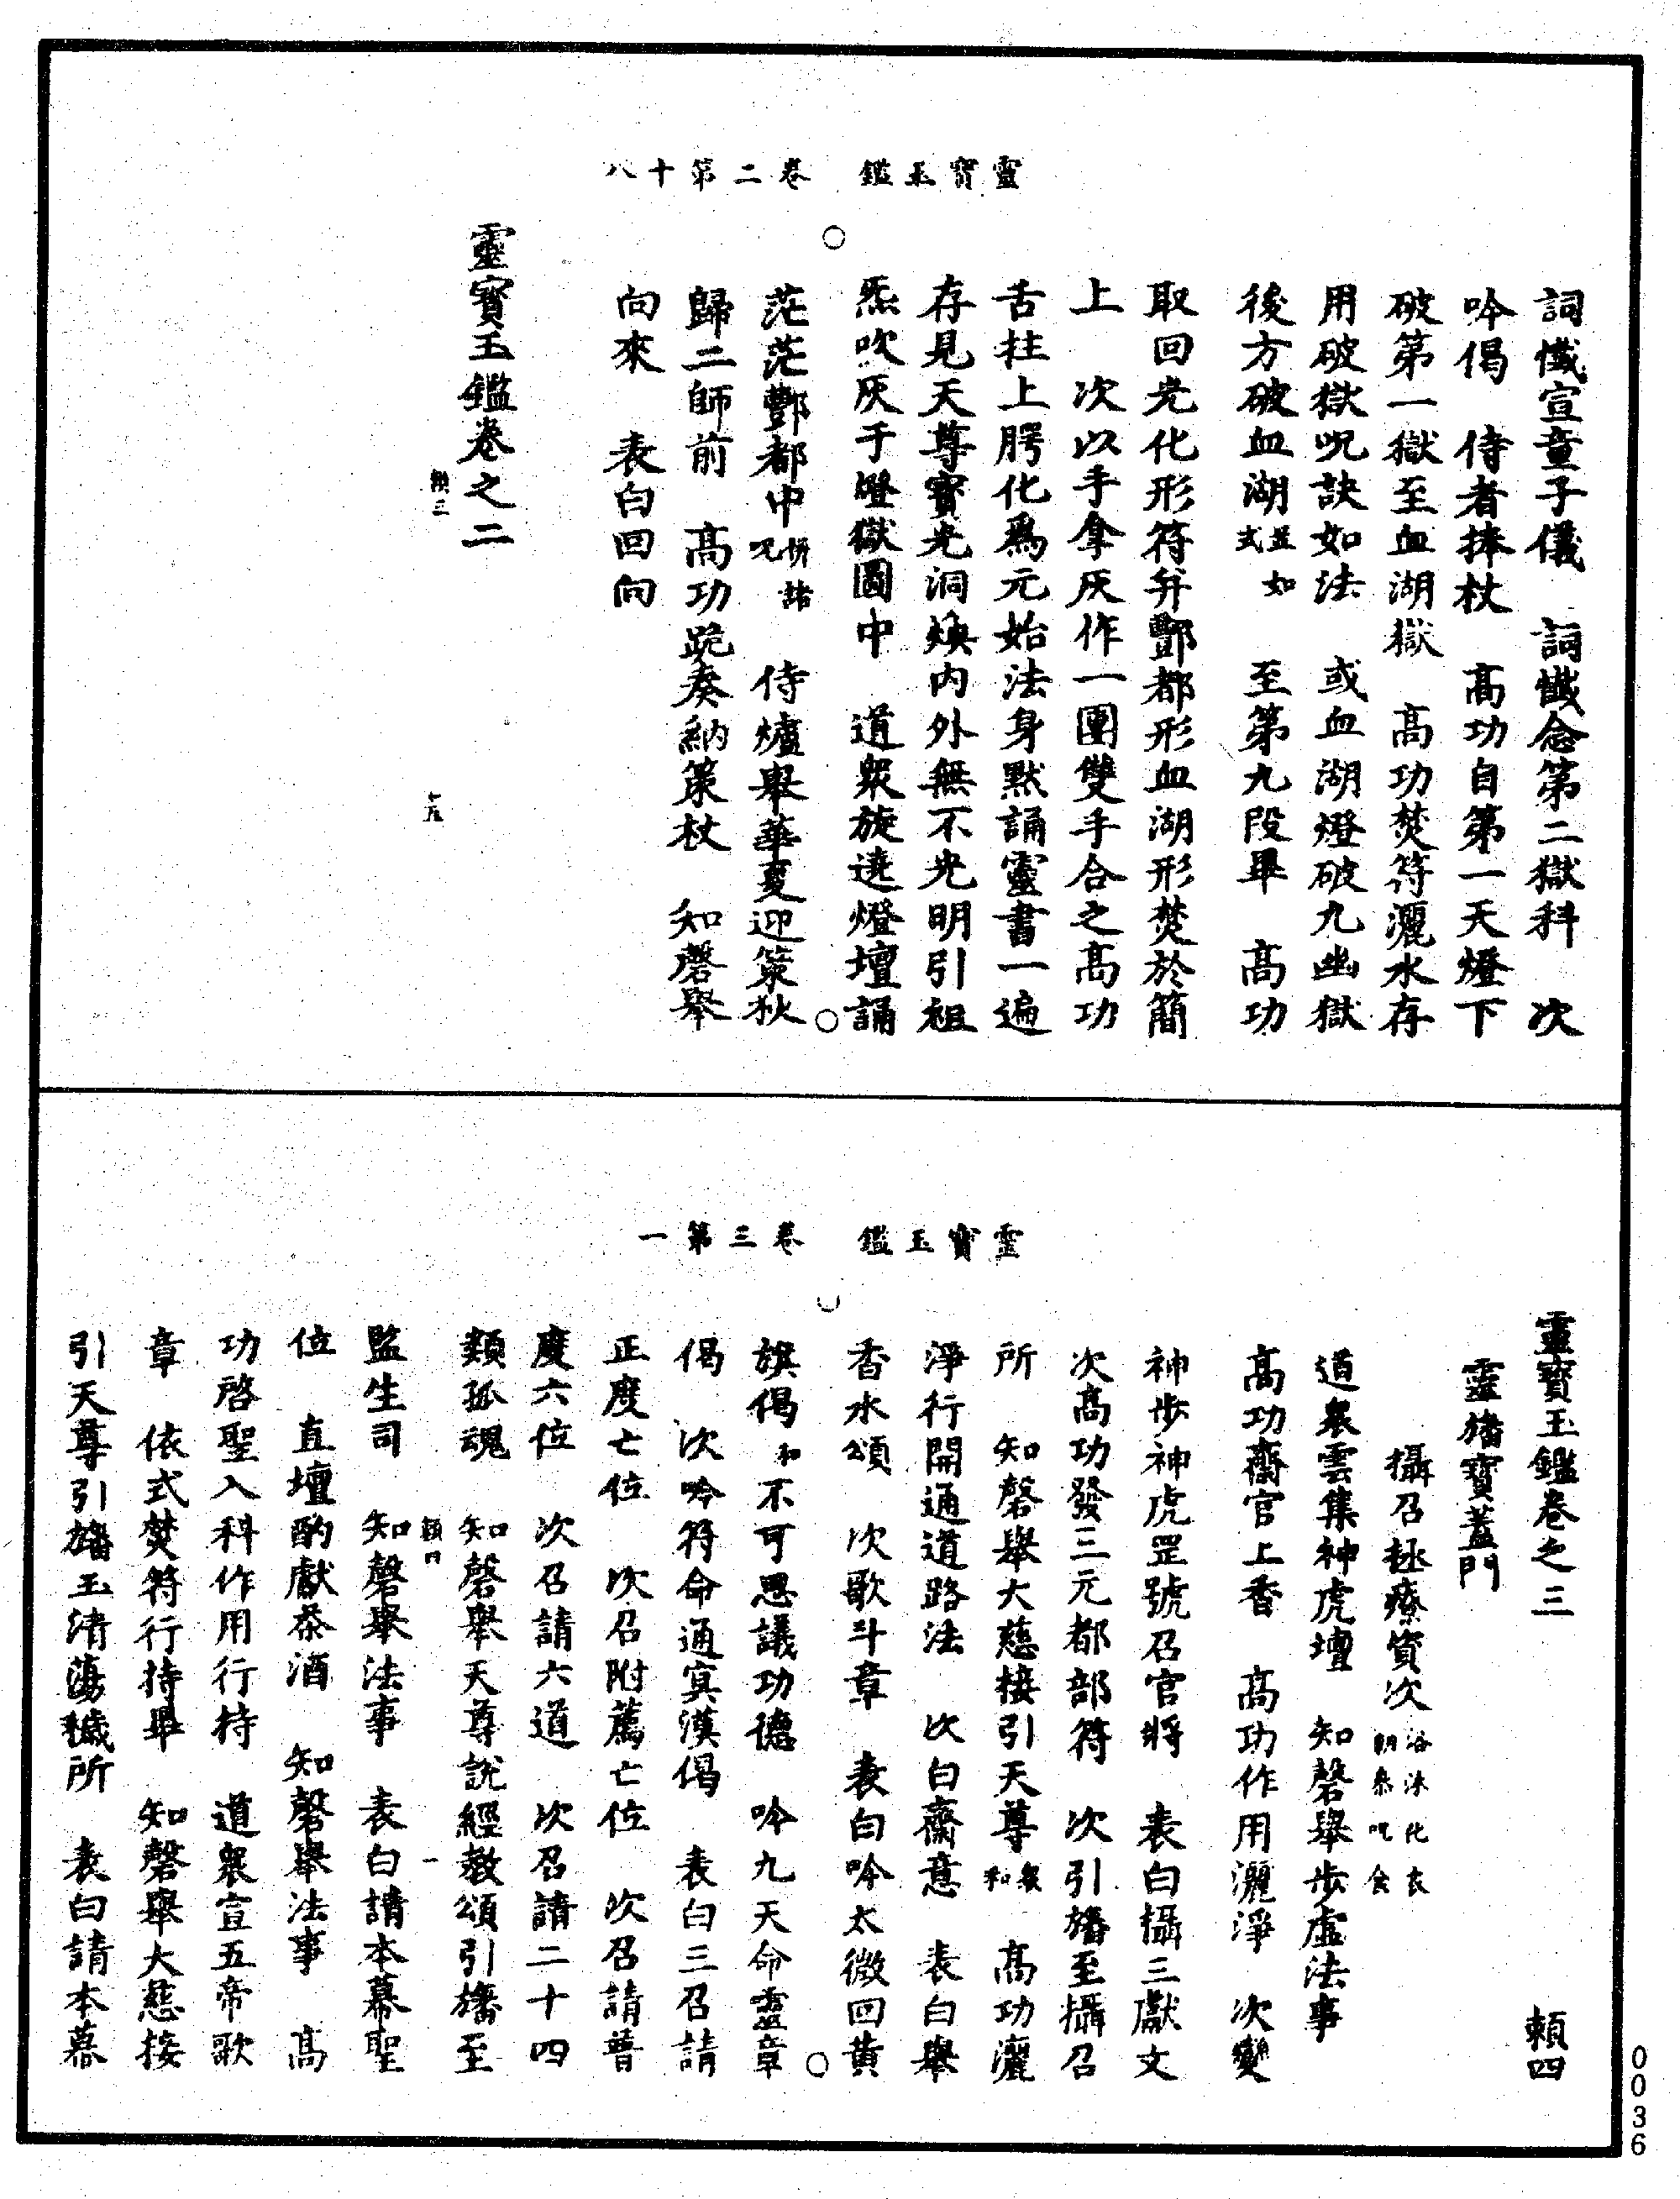 靈寶玉鑑　卷二第十八
詞懺宣童子儀　詞懺念第二獄科　次
吟偈　侍者捧杖　高功自第一天燈下
破第一獄至血湖獄　高功焚符灑水存
用破獄呪訣如法　或血湖燈破九幽獄
後方破血湖並如式　至第九段畢　高功
取回光化形符并酆都形血湖形焚於簡
上　次以手拿灰作一團雙手合之高功
舌拄上腭化爲元始法身默誦靈書一遍
存見天尊寶光洞煥內外無不光明引祖
炁吹灰于燈獄圖中　道衆旋遶燈壇誦
茫茫酆都中諸呪　侍爐舉華夏迎策杖
歸二師前　高功跪奏納策杖　知磬舉
向來　表白回向
靈寶玉鑑卷之二
頼三
十八
靈寶玉鑑　卷三第一
靈寶玉鑑卷之三　頼四
靈旛寶蓋門
攝召拯療資次浴沐化衣明梟呪食
道衆雲集神虎壇　知磬舉步虛法事
高功齋官上香　高功作用灑淨　次變
神步神虎罡號召官將　表白攝三獻文
次高功發三元都部符　次引旛至攝召
所　知磬舉大慈接引天尊衆和　高功灑
淨行開通道路法　次白齋意　表白舉
香水頌　次歌斗章　表白吟太微回黃
旗偈和不可思議功德　吟九天命靈章
偈　次吟符命通寞漠偈　表白三召請
正度亡位　次召附薦亡位　次召請普
度六位　次召請六道　次召請二十四
類孤魂　知磬舉天尊說經教頌引旛至
頼四　一
監生司　知磬舉法事　表白請本幕聖
位　直壇酌獻茶酒　知磬舉法事　高
功啓聖入科作用行持　道衆宣五帝歌
章　依式焚符行持畢　知磬舉大慈接
引天尊引旛玉清蕩穢所　表白請本幕
0036